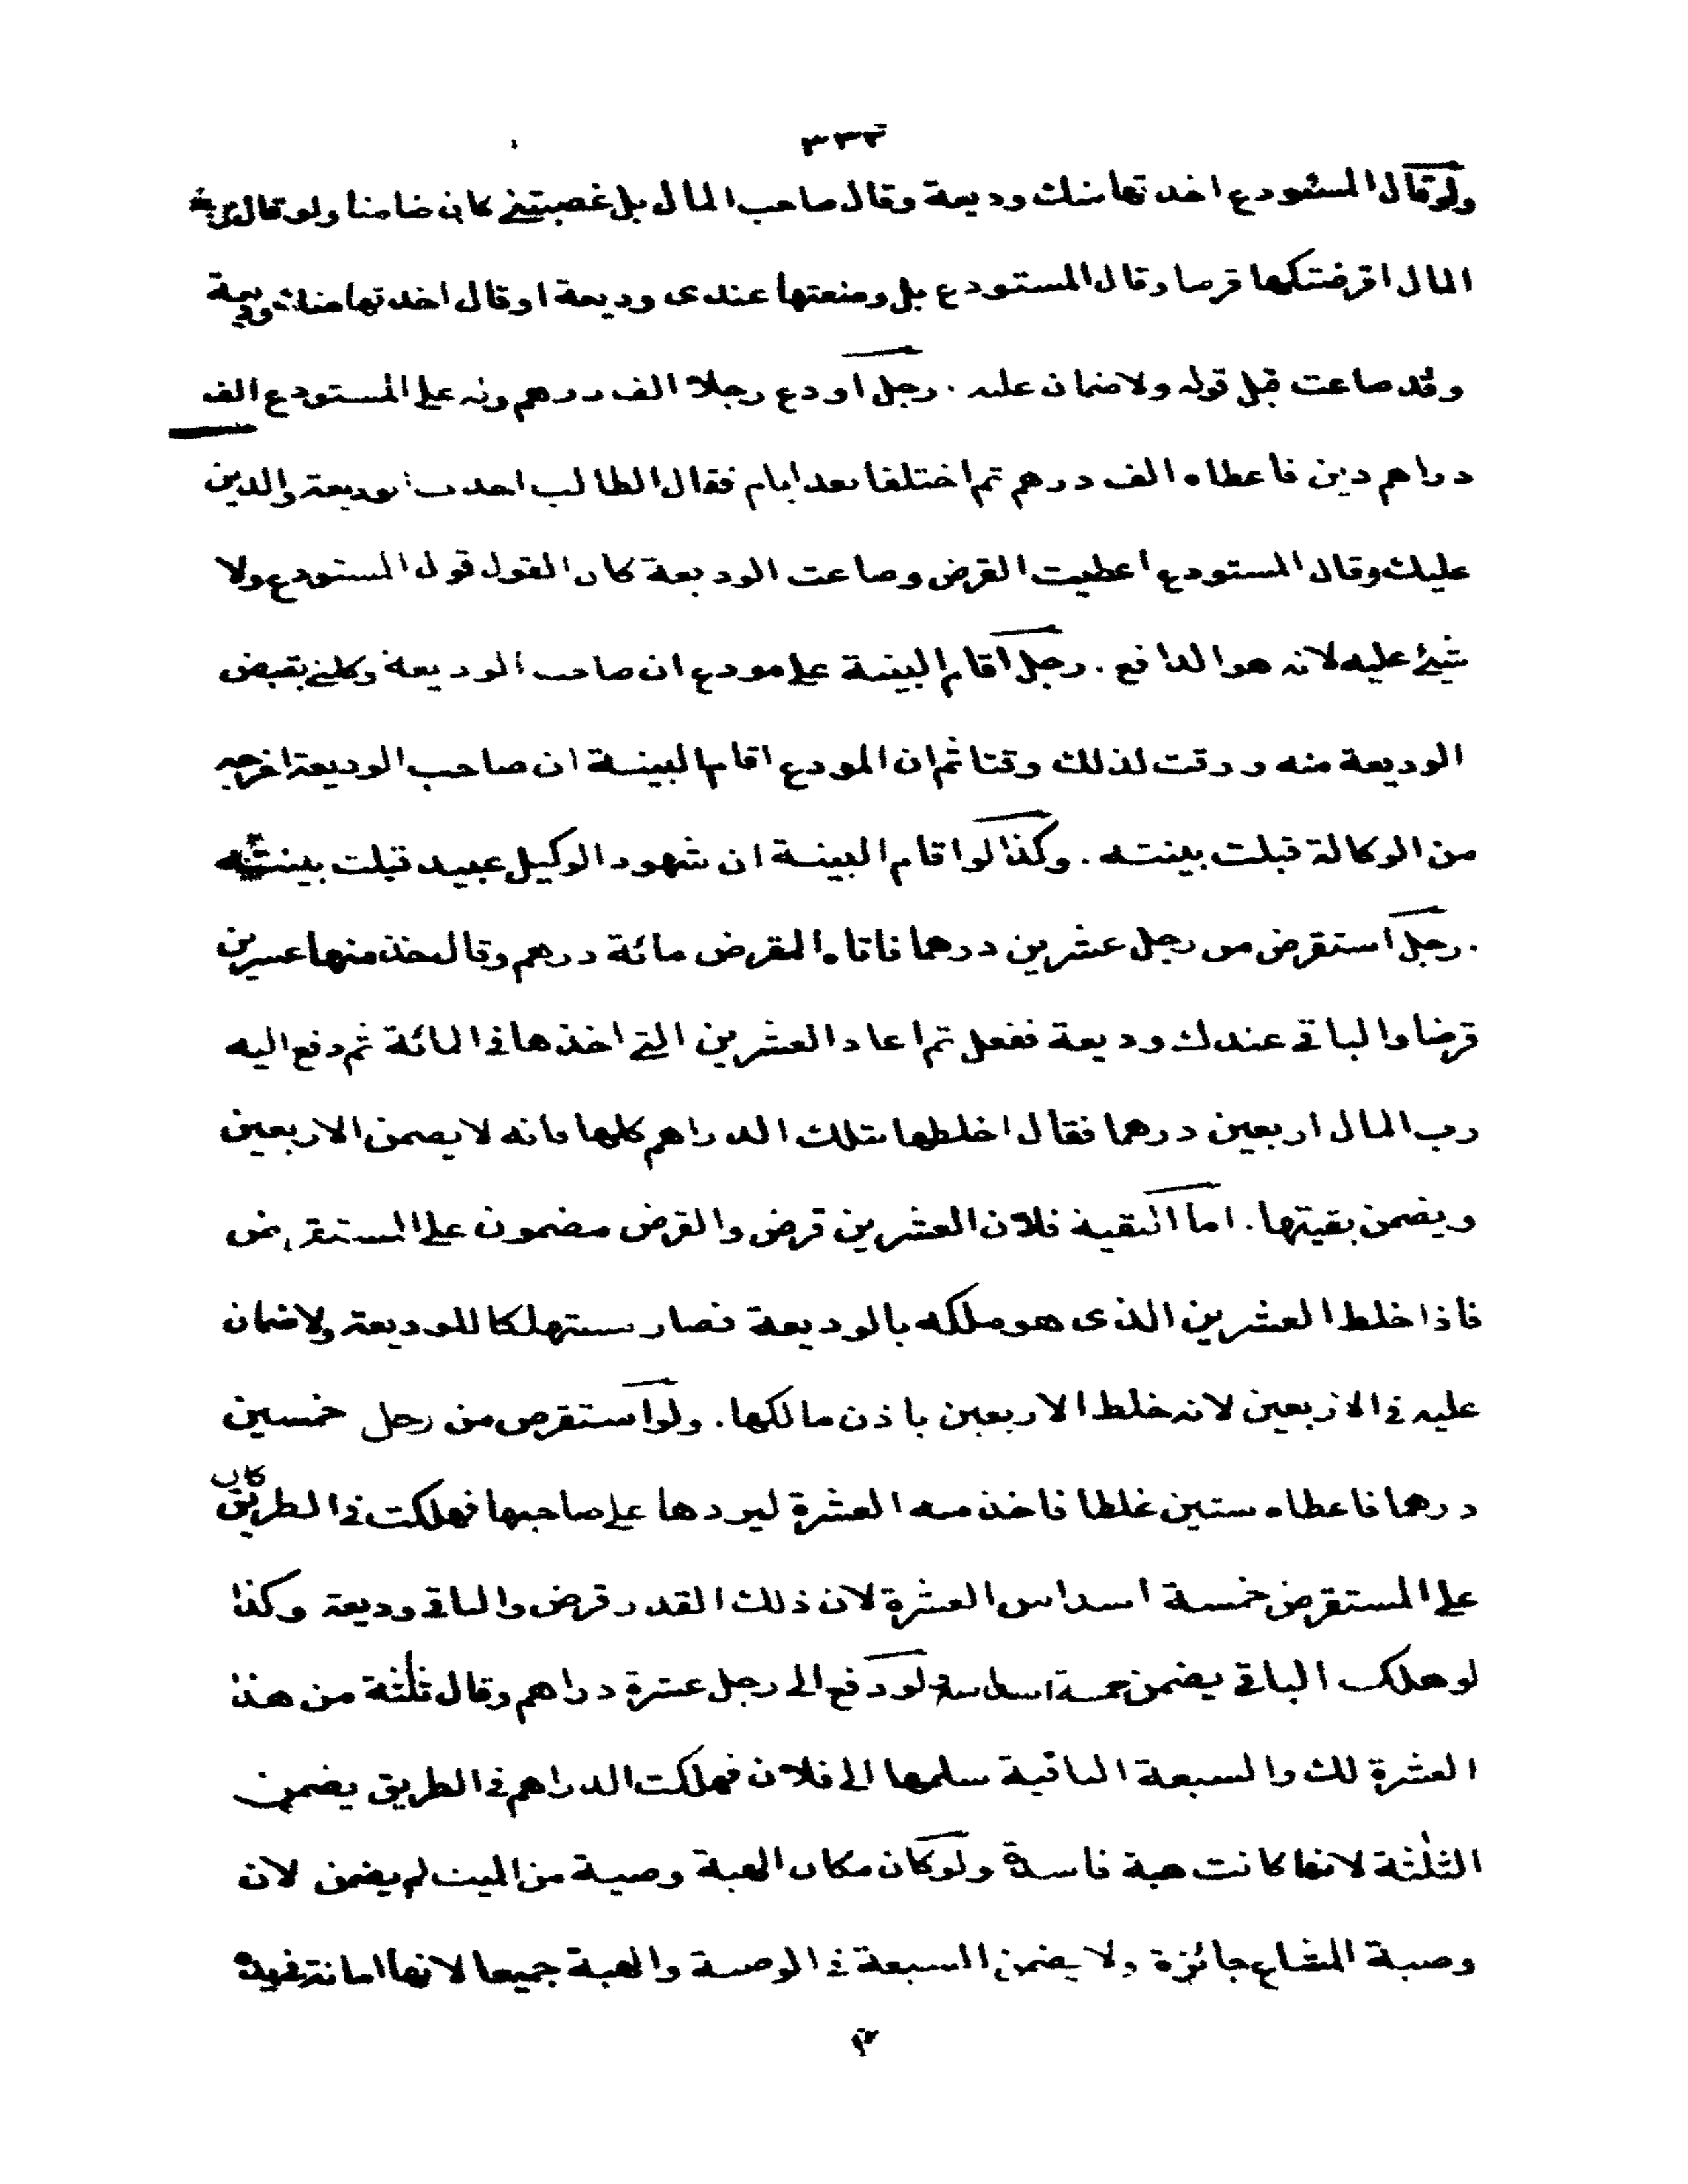 ٣٣٢
ولو قال المستودع اخذتها منك وديعة وقال صاحب المال بل غصبتنى كان ضامنا ولو قال رب
المال اقرضتكها قرضا وقال المستودع بل وضعتها عندى وديعة او قال اخذتها منك وديعة
وقد ضاعت قبل قوله ولا ضمان عليه . رجل اودع رجلا الف درهم وله على المستودع الف
دراهم دين فاعطاه الف درهم ثم اختلفا بعد ايام فقال الطالب اخذت الوديعة والدين
عليك وقال المستودع اعطيت القرض وضاعت الوديعة كان القول قول المستودع ولا
شئ عليه لانه هو الدافع . رجل اقام البينة على مودع ان صاحب الوديعة وكلنى بقبض
الوديعة منه ووقت لذلك وقتا ثم ان المودع اقام البينة ان صاحب الوديعة اخرجه
من الوكالة قبلت بينته . وكذا لو اقام البينة ان شهود الوكيل عبيد قبلت بينته
. رجل استقرض من رجل عشرين درهما فاتاه المقرض مائة درهم وقال خذ منها عشرين
قرضا والباقى عندك وديعة ففعل ثم اعاد العشرين التى اخذها فى المائة ثم دفع اليه
رب المال اربعين درهما فقال اخلطها بتلك الدراهم كلها فانه لا يضمن الاربعين
ويضمن بقيتها . اما البقية فلان العشرين قرض والقرض مضمون على المستقرض
فاذا خلط العشرين الذى هو ملكه بالوديعة فصار مستهلكا للوديعة ولا ضمان
عليه فى الاربعين لانه خلط الاربعين باذن مالكها . ولو استقرض من رجل خمسين
درهما فاعطاه ستين غلطا فاخذ منه العشرة ليردها على صاحبها فهلكت فى الطريق كان
على المستقرض خمسة اسداس العشرة لان ذلك القدر قرض والباقى وديعة وكذا
لو هلك الباقى يضمن خمسة اسداسه ولو دفع الى رجل عشرة دراهم وقال ثلثة من هذه
العشرة لك والسبعة الباقية سلمها الى فلان فهلكت الدراهم فى الطريق يضمن
الثلثة لانها كانت هبة فاسدة ولو كان مكان الهبة وصية من الميت لم يضمن لان
وصية المشاع جائزة ولا يضمن السبعة فى الوصية والهبة جميعا لانها امانة